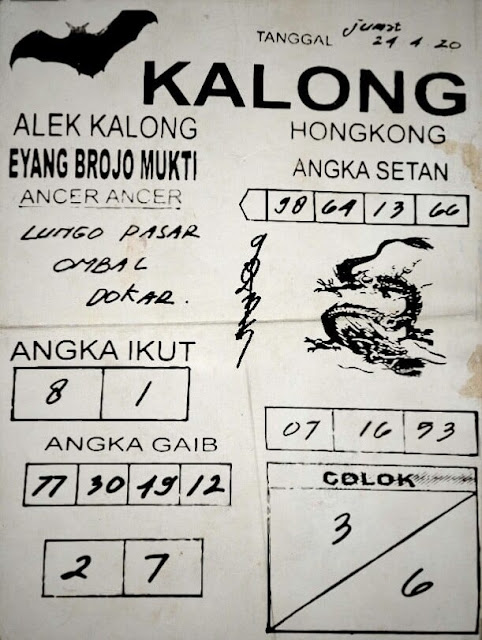 TANGGAL jumat
24 4 20
KALONG
ALEK KALONG
EYANG BROJO MUKTI
ANCER ANCER
LUNGO PASAR
OMBAL
DOKAR.
HONGKONG
ANGKA SETAN
98 64 13 66
ANGKA IKUT
8 1
ANGKA GAIB
77 30 49 12
2 7
07 16 93
COLOK
3
6